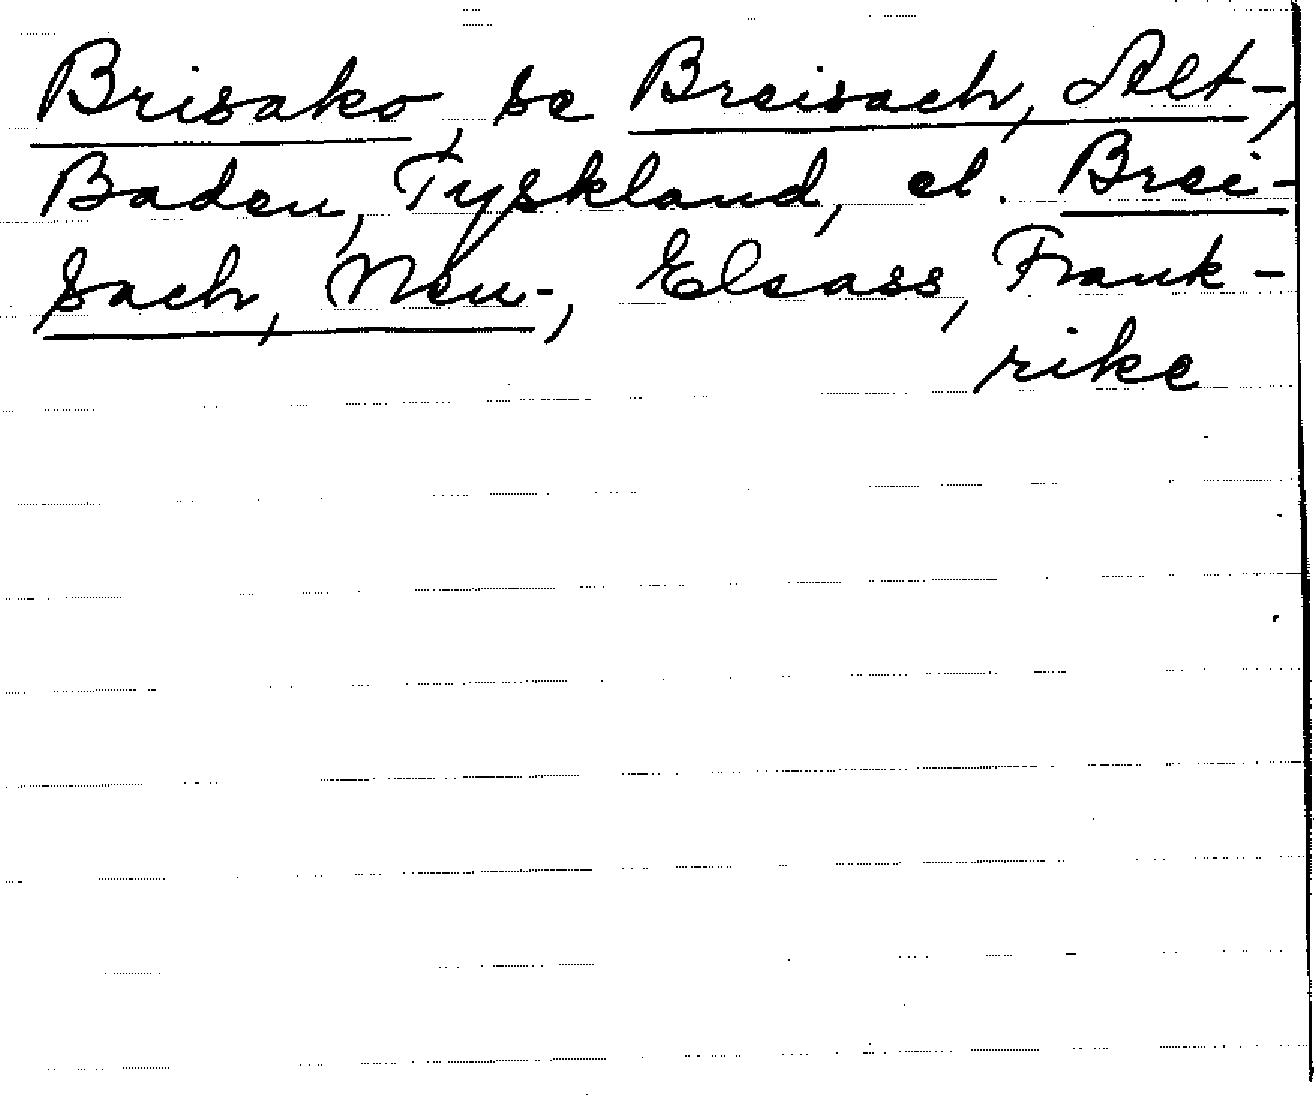 Brisako, se Breisach, Alt-,
Baden, Tyskland, el. Brei-
sach, Neu-, Elsass, Frank-
rike